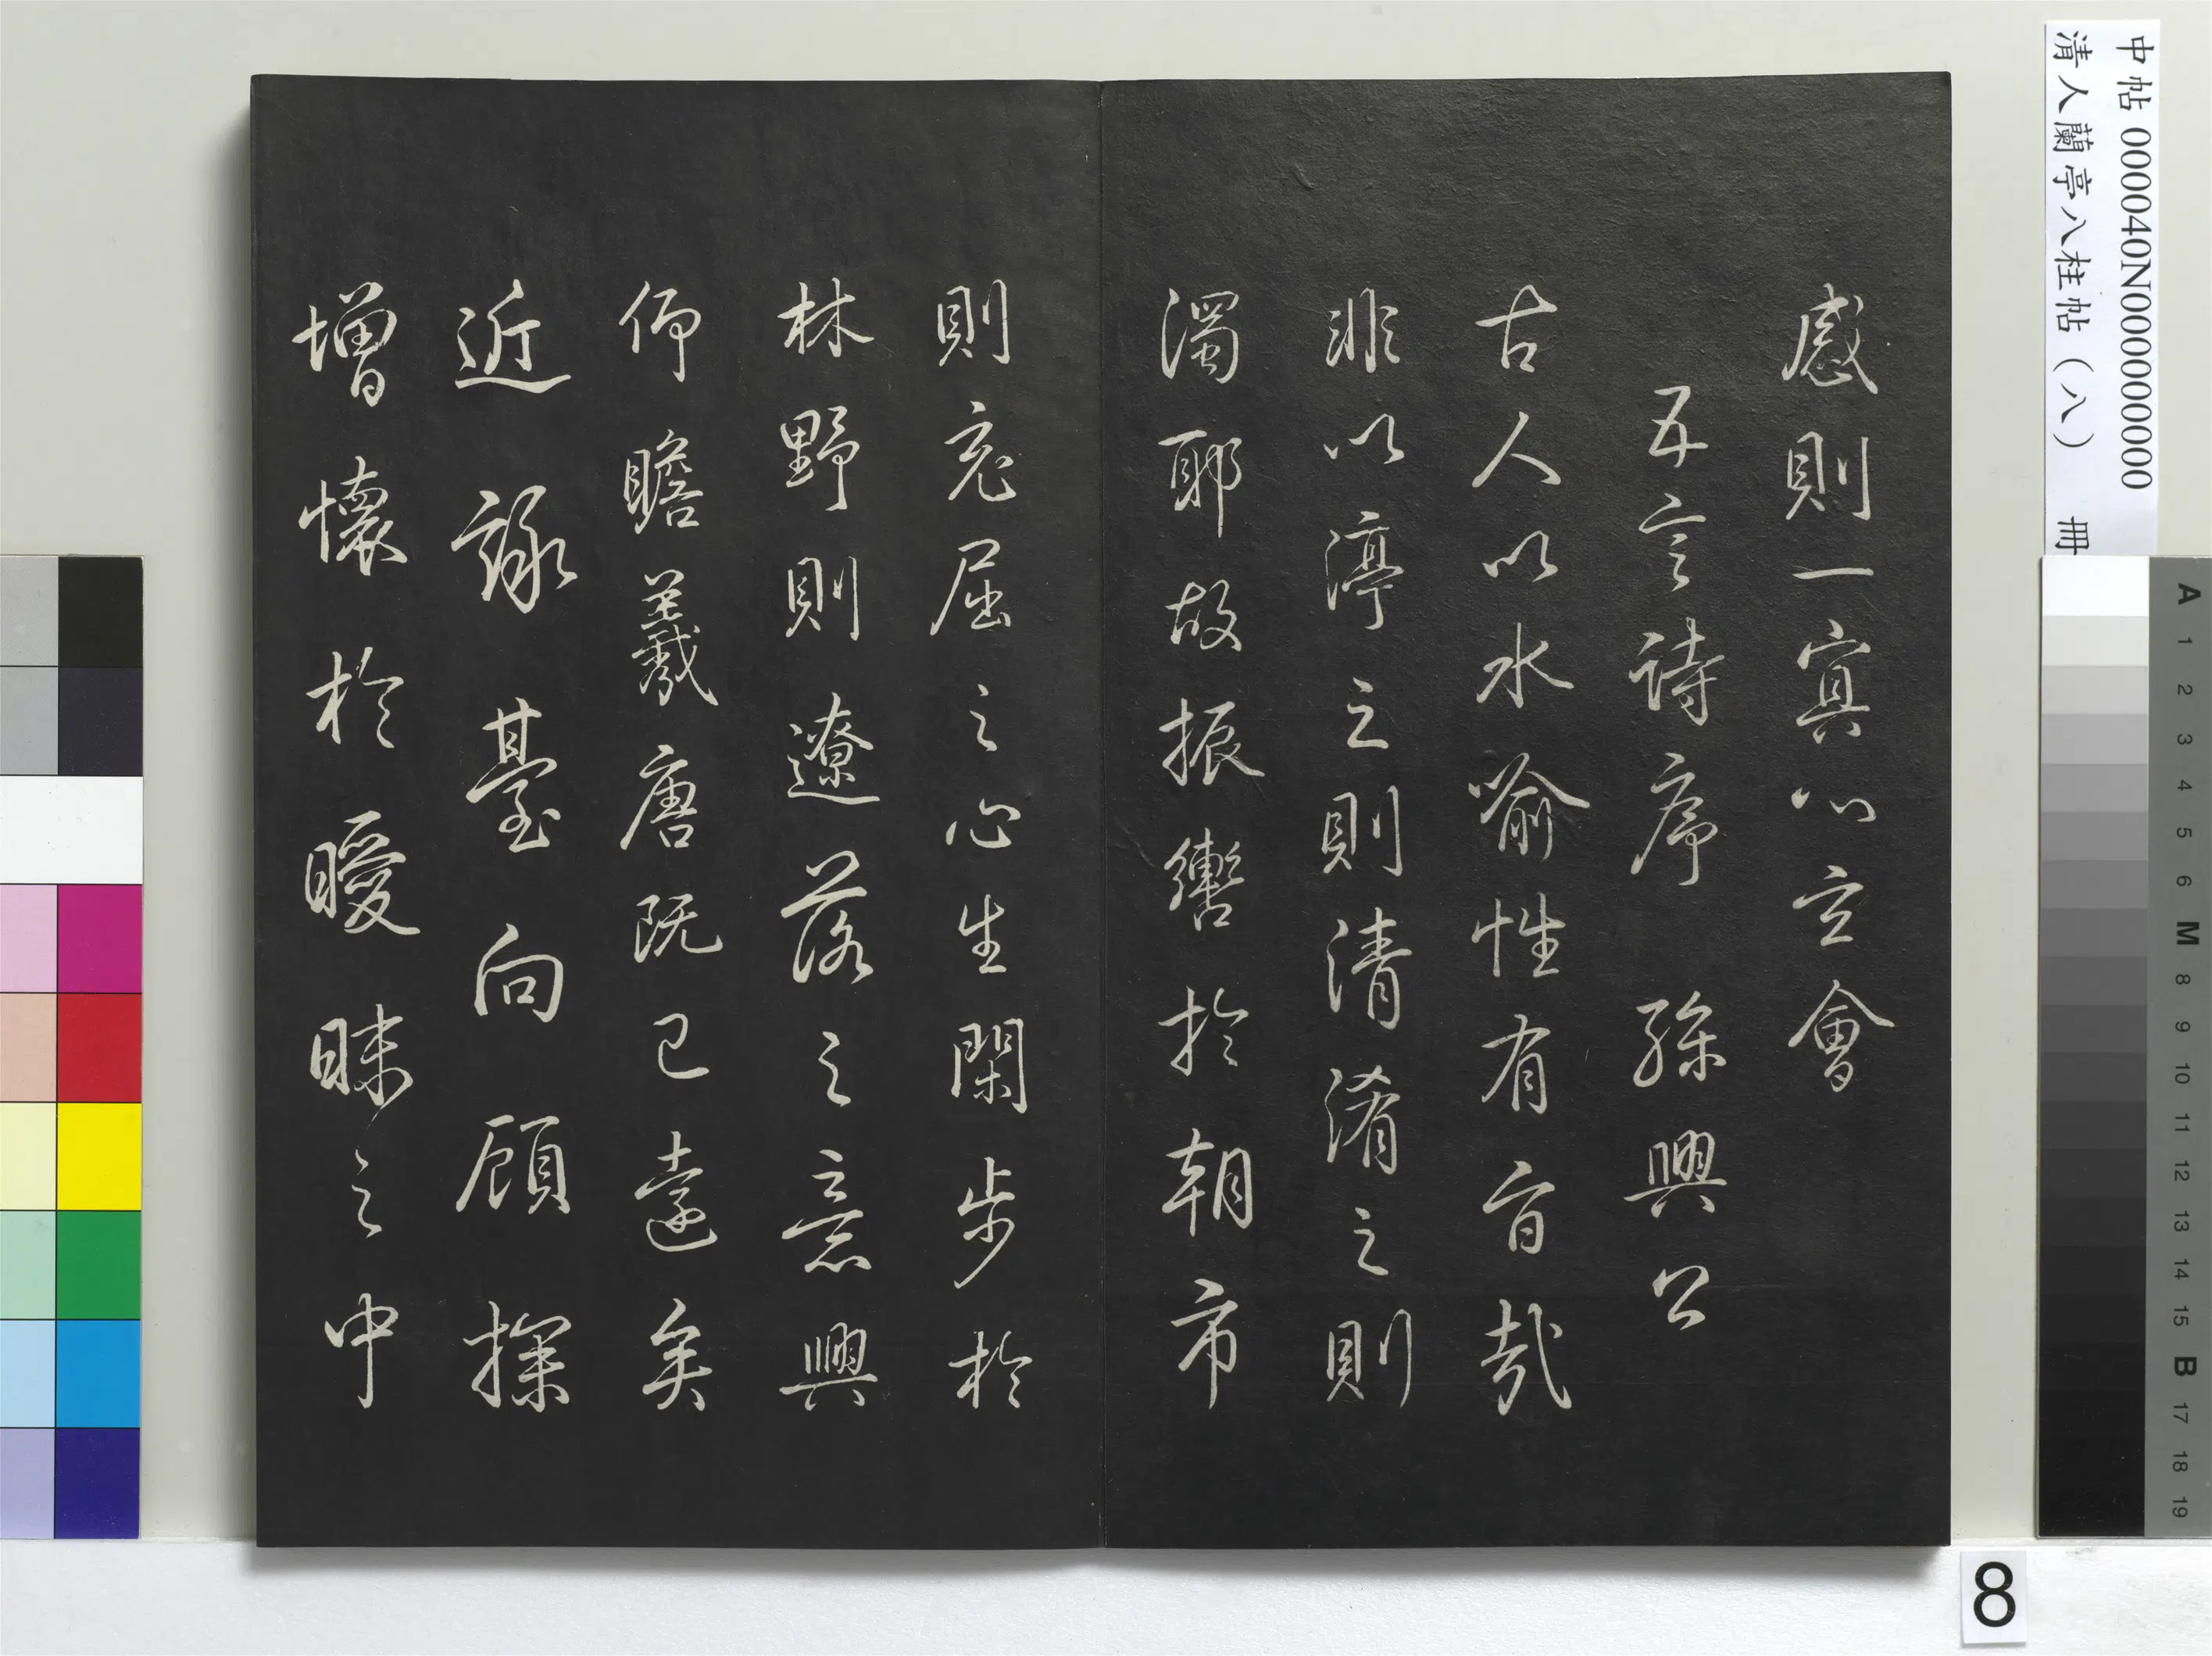 感則一寘心立會
五言詩序 孫興公
古人以水喻性有旨哉
非以渟之則清淆之則
濁耶故振轡於朝市
則充屈之心生閑步於
林野則遼落之意興
仰瞻羲唐既已遠矣
近詠臺向顧探
增懷於曖昧之中
中帖 000040N000000000
清人蘭亭八柱帖（八） 冊
A 1 2 3 4 5 6 M 8 9 10 11 12 13 14 15 B 17 18 19
8